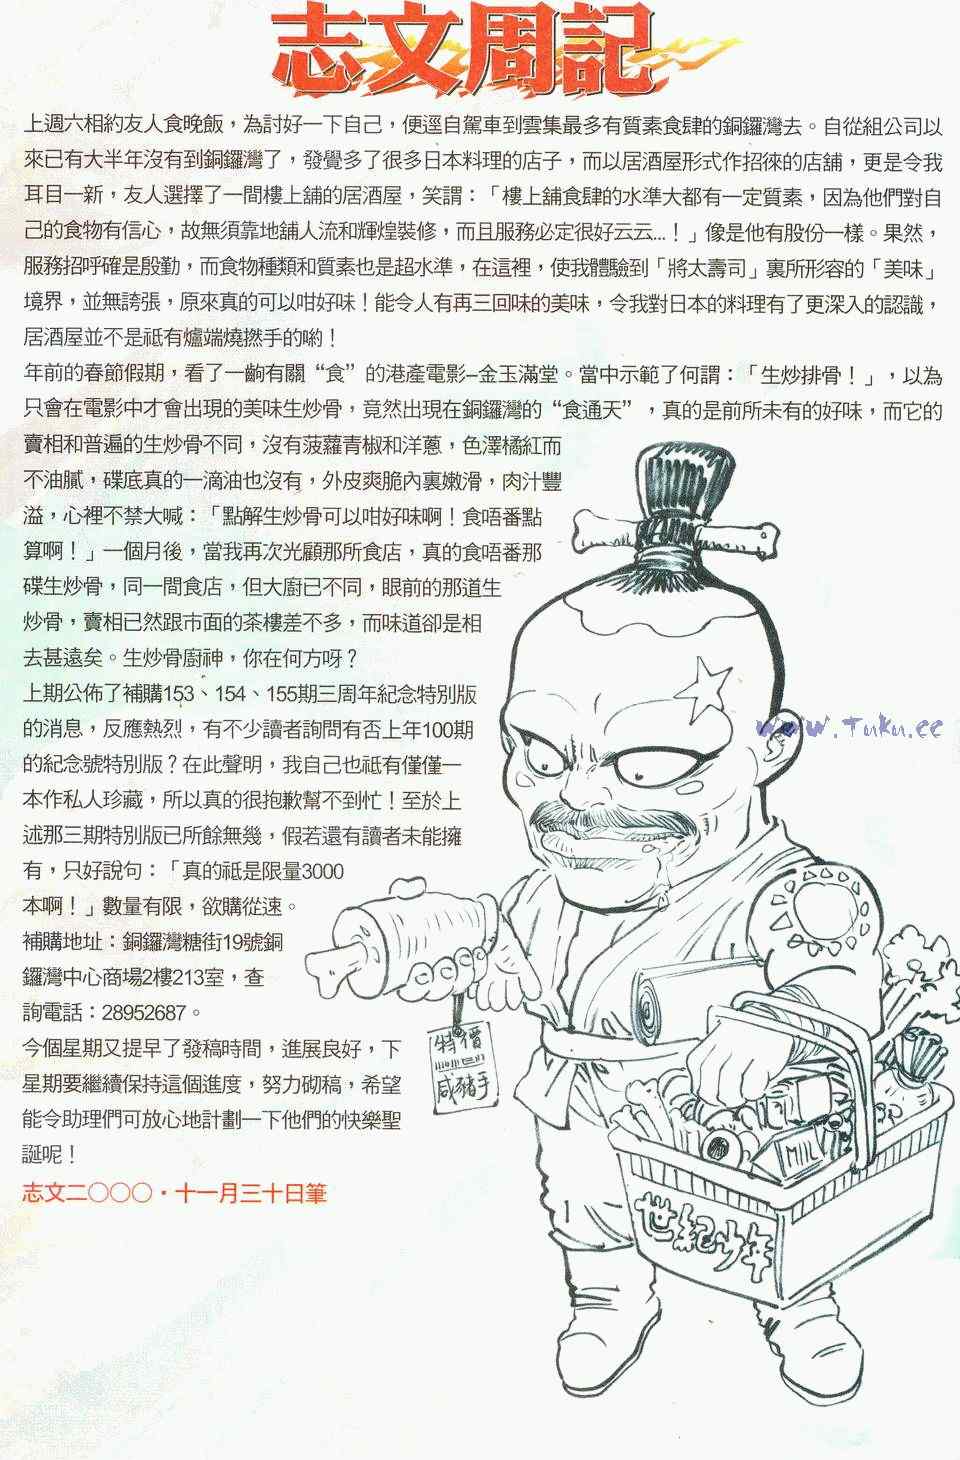 志文周記
上週六相約友人食晚飯，為討好一下自己，便逕自駕車到雲集最多有質素食肆的銅鑼灣去。自從組公司以
來已有大半年沒有到銅鑼灣了，發覺多了很多日本料理的店子，而以居酒屋形式作招徠的店舖，更是令我
耳目一新，友人選擇了一間樓上舖的居酒屋，笑謂：「樓上舖食肆的水準大都有一定質素，因為他們對自
己的食物有信心，故無須靠地舖人流和輝煌裝修，而且服務必定很好云云...！」像是他有股份一樣。果然，
服務招呼確是殷勤，而食物種類和質素也是超水準，在這裡，使我體驗到「將太壽司」裏所形容的「美味」
境界，並無誇張，原來真的可以咁好味！能令人有再三回味的美味，令我對日本的料理有了更深入的認識，
居酒屋並不是祗有爐端燒撚手的喲！
年前的春節假期，看了一齣有關“食”的港產電影–金玉滿堂。當中示範了何謂：「生炒排骨！」，以為
只會在電影中才會出現的美味生炒骨，竟然出現在銅鑼灣的“食通天”，真的是前所未有的好味，而它的
賣相和普遍的生炒骨不同，沒有菠蘿青椒和洋蔥，色澤橘紅而
不油膩，碟底真的一滴油也沒有，外皮爽脆內裏嫩滑，肉汁豐
溢，心裡不禁大喊：「點解生炒骨可以咁好味啊！食唔番點
算啊！」一個月後，當我再次光顧那所食店，真的食唔番那
碟生炒骨，同一間食店，但大廚已不同，眼前的那道生
炒骨，賣相已然跟市面的茶樓差不多，而味道卻是相
去甚遠矣。生炒骨廚神，你在何方呀？
上期公佈了補購153、154、155期三周年紀念特別版
的消息，反應熱烈，有不少讀者詢問有否上年100期
的紀念號特別版？在此聲明，我自己也祗有僅僅一
本作私人珍藏，所以真的很抱歉幫不到忙！至於上
述那三期特別版已所餘無幾，假若還有讀者未能擁
有，只好說句：「真的祗是限量3000
本啊！」數量有限，欲購從速。
補購地址：銅鑼灣糖街19號銅
鑼灣中心商場2樓213室，查
詢電話：28952687。
今個星期又提早了發稿時間，進展良好，下
星期要繼續保持這個進度，努力砌稿，希望
能令助理們可放心地計劃一下他們的快樂聖
誕呢！
志文二〇〇〇・十一月三十日筆
www.Tuku.cc
特價
咸豬手
MILL
世紀少年